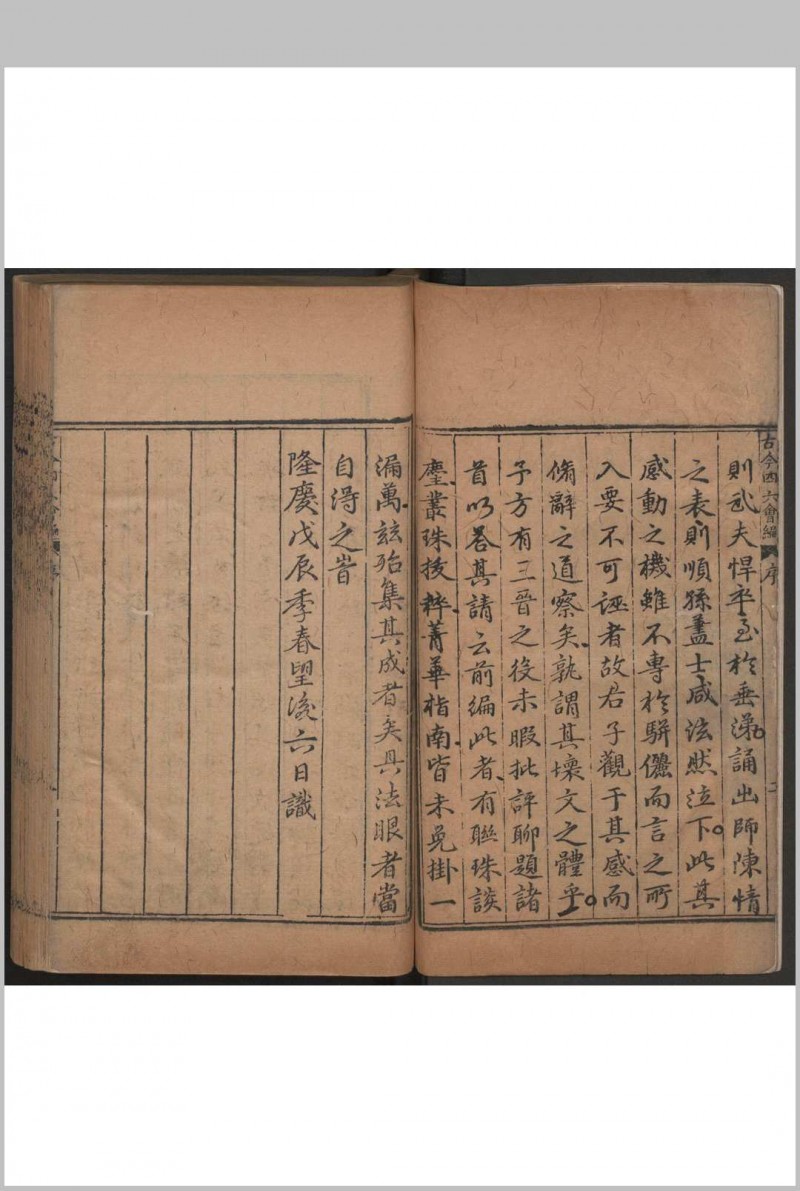 古今四六會編 序 二
則武夫悍卒至於垂涕誦出師陳情
之表則順孫藎士咸泫然泣下此其
感動之機雖不專於駢儷而言之所
入要不可誣者故君子觀于其感而
脩辭之道察矣孰謂其壞文之體乎
予方有三晉之役未暇批評聊題諸
首以荅其請云前編此者有聯珠談
麈叢珠拔粹菁華指南皆未免掛一
漏萬玆殆集其成者矣具法眼者當
自淂之旹
隆慶戊辰季春望後六日識